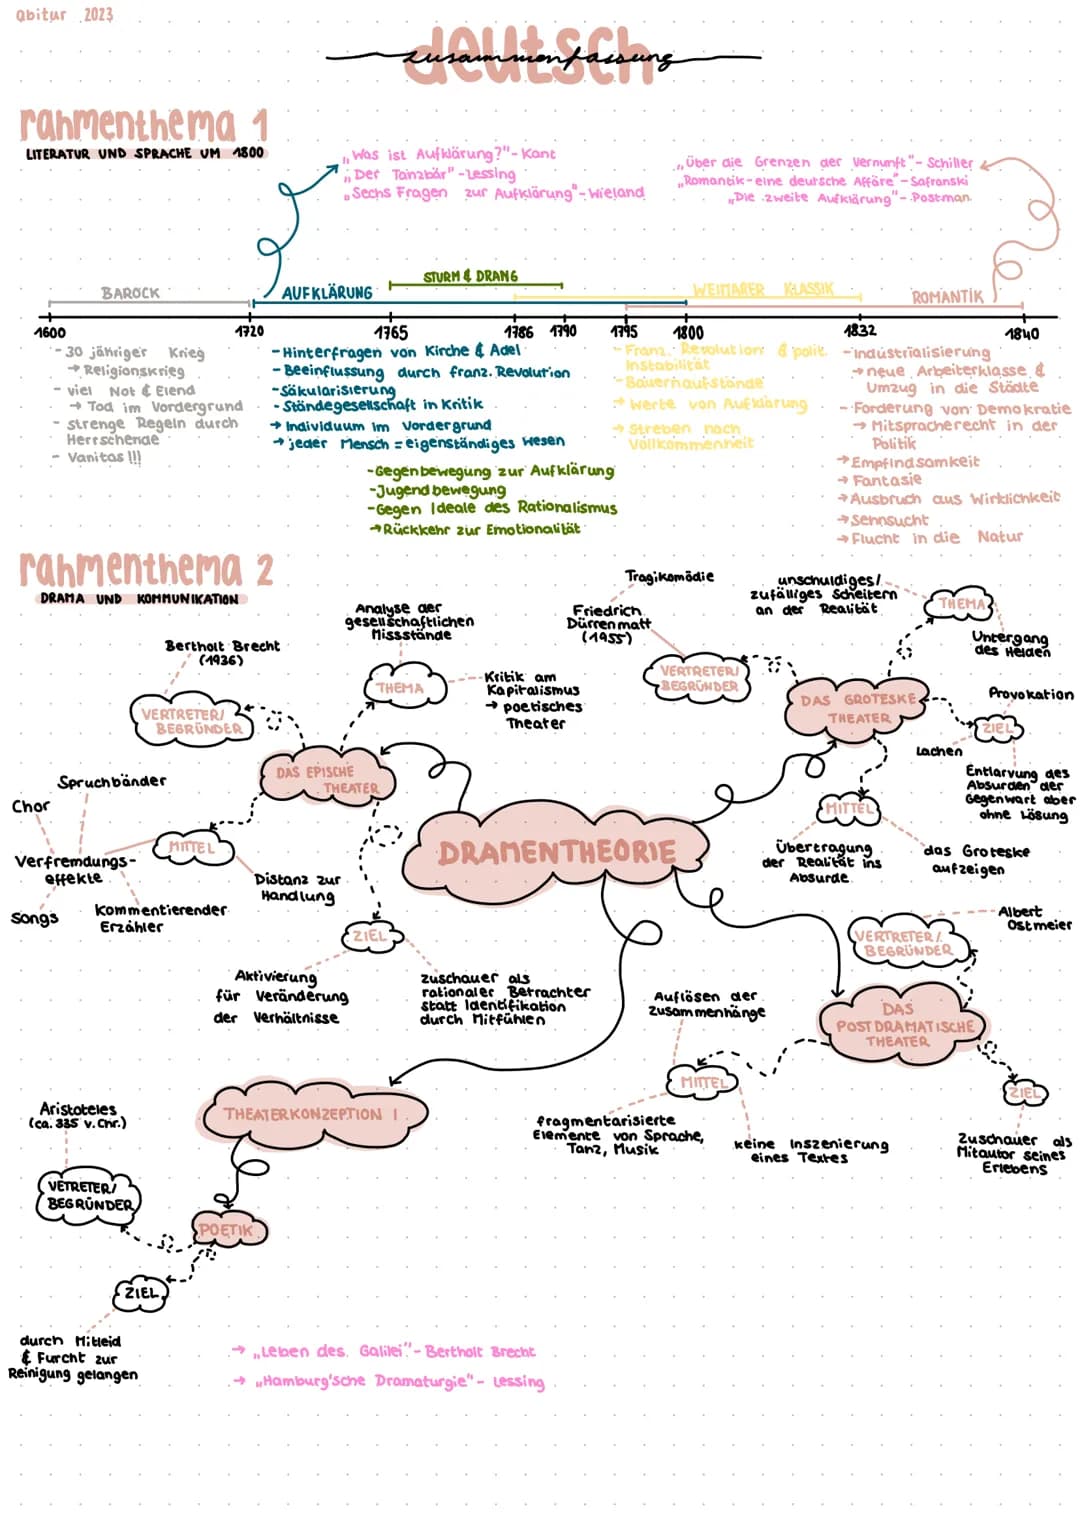 abitur 2023
deutsch
zusammenfassung
rahmenthema 1
LITERATUR UND SPRACHE UM 1800
„Was ist Aufklärung?"- Kant
„Der Tanzbär" -Lessing
„Sechs Fragen zur Aufklärung"- Wieland
„Über die Grenzen der Vernunft"- Schiller
„Romantik-eine deutsche Affäre"- Safranski
„Die zweite Aufklärung"- Postman
BAROCK
AUFKLÄRUNG
STURM & DRANG
WEIMARER KLASSIK
ROMANTIK
1600
1720
1765
1786
1790
1795
1800
1832
1840
- 30 jähriger Krieg
→ Religionskrieg
- viel Not & Elend
→ Tod im Vordergrund
- strenge Regeln durch
Herrschende
- Vanitas !!!
- Hinterfragen von Kirche & Adel
- Beeinflussung durch franz. Revolution
- Säkularisierung
- Ständegesellschaft in Kritik
→ Individuum im Vordergrund
→ jeder Mensch = eigenständiges Wesen
-Gegenbewegung zur Aufklärung
-Jugendbewegung
-Gegen Ideale des Rationalismus
→Rückkehr zur Emotionalität
- Franz. Revolution & polit.
Instabilität
- Bauernaufstände
→ Werte von Aufklärung
→ Streben nach
Vollkommenheit
- Industrialisierung
→ neue Arbeiterklasse &
Umzug in die Städte
- Forderung von Demokratie
→ Mitspracherecht in der
Politik
→ Empfindsamkeit
→ Fantasie
→ Ausbruch aus Wirklichkeit
→ Sehnsucht
→ Flucht in die Natur
rahmenthema 2
DRAMA UND KOMMUNIKATION
Bertholt Brecht
(1936)
VERTRETER/
BEGRÜNDER
Analyse der
gesellschaftlichen
Missstände
THEMA
Kritik am
Kapitalismus
→ poetisches
Theater
DAS EPISCHE
THEATER
Spruchbänder
Chor
Verfremdungs-
effekte
Songs
Kommentierender
Erzähler
MITTEL
Distanz zur
Handlung
ZIEL
Aktivierung
für Veränderung
der Verhältnisse
zuschauer als
rationaler Betrachter
statt Identifikation
durch Mitfühlen
DRAMENTHEORIE
Tragikomödie
Friedrich
Dürrenmatt
(1955)
VERTRETER/
BEGRÜNDER
unschuldiges/
zufälliges Scheitern
an der Realität
THEMA
Untergang
des Helden
DAS GROTESKE
THEATER
Provokation
ZIEL
Lachen
Entlarvung des
Absurden der
Gegenwart aber
ohne Lösung
MITTEL
Übertragung
der Realität ins
Absurde
das Groteske
aufzeigen
Albert
Ostmeier
VERTRETER/
BEGRÜNDER
DAS
POSTDRAMATISCHE
THEATER
Auflösen der
Zusammenhänge
MITTEL
fragmentarisierte
Elemente von Sprache,
Tanz, Musik
keine Inszenierung
eines Textes
ZIEL
Zuschauer als
Mitautor seines
Erlebens
THEATERKONZEPTION I
Aristoteles
(ca. 335 v. Chr.)
VETRETER/
BEGRÜNDER
POETIK
ZIEL
durch Mitleid
& Furcht zur
Reinigung gelangen
→ „Leben des Galilei"- Bertholt Brecht
→ „Hamburg'sche Dramaturgie"- Lessing